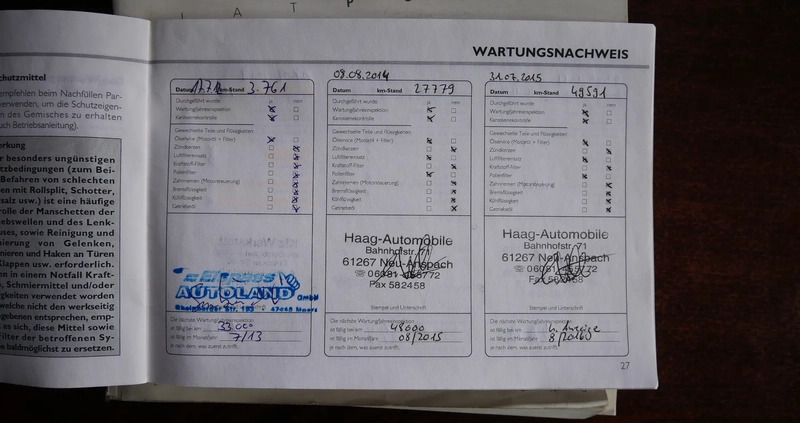 L A T P
WARTUNGSNACHWEIS
chutzmittel
empfehlen beim Nachfüllen Par-
verwenden, um die Schutzeigen-
n des Gemisches zu erhalten
uch Betriebsanleitung).
rkung
r besonders ungünstigen
tzbedingungen (zum Bei-
Befahren von schlechten
en mit Rollsplit, Schotter,
salz usw.) ist eine häufige
rolle der Manschetten der
ebswellen und des Lenk-
uses, sowie Reinigung und
ierung von Gelenken,
nieren und Haken an Türen
lappen usw. erforderlich.
en in einem Notfall Kraft-
, Schmiermittel und/oder
igkeiten verwendet worden
welche nicht den werkseitig
gebenen entsprechen, emp-
es sich, diese Mittel sowie
ilter der betroffenen Sy-
baldmöglichst zu ersetzen.
Datum km-Stand 3.761
Durchgeführt wurde: ja nein
Wartung/Jahresinspektion
Karosseriekontrolle
Gewechselte Teile und Flüssigkeiten:
Ölservice (Motoröl + Filter)
Zündkerzen
Luftfiltereinsatz
Kraftstoff-Filter
Pollenfilter
Zahnriemen (Motorsteuerung)
Bremsflüssigkeit
Kühlflüssigkeit
Getriebeöl
Express
AUTOLAND GmbH
Rheinberger Str. 193 47445 Moers
Die nächste Wartung/Jahresinspektion
ist fällig bei km 33.000
ist fällig im Monat/Jahr 7/13
je nach dem, was zuerst zutrifft.
08.08.2014
Datum km-Stand 27779
Durchgeführt wurde: ja nein
Wartung/Jahresinspektion
Karosseriekontrolle
Gewechselte Teile und Flüssigkeiten:
Ölservice (Motoröl + Filter)
Zündkerzen
Luftfiltereinsatz
Kraftstoff-Filter
Pollenfilter
Zahnriemen (Motorsteuerung)
Bremsflüssigkeit
Kühlflüssigkeit
Getriebeöl
Haag-Automobile
Bahnhofstr. 71
61267 Neu-Anspach
☏ 06081 - 455772
Fax 582458
Stempel und Unterschrift
Die nächste Wartung/Jahresinspektion
ist fällig bei km 48000
ist fällig im Monat/Jahr 08/2015
je nach dem, was zuerst zutrifft.
31.07.2015
Datum km-Stand 49591
Durchgeführt wurde: ja nein
Wartung/Jahresinspektion
Karosseriekontrolle
Gewechselte Teile und Flüssigkeiten:
Ölservice (Motoröl + Filter)
Zündkerzen
Luftfiltereinsatz
Kraftstoff-Filter
Pollenfilter
Zahnriemen (Motorsteuerung)
Bremsflüssigkeit
Kühlflüssigkeit
Getriebeöl
Haag-Automobile
Bahnhofstr. 71
61267 Neu-Anspach
☏ 06081 - 455772
Fax 582458
Stempel und Unterschrift
Die nächste Wartung/Jahresinspektion
ist fällig bei km n. Anzeige
ist fällig im Monat/Jahr 8/2016
je nach dem, was zuerst zutrifft.
27